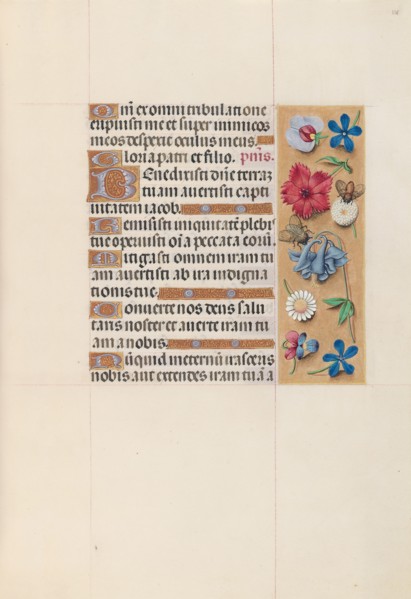 Qm̄ ex omni tribulatione
eripuisti me et super inimicos
meos despexit oculus meus.
Gloria patri et filio. ps̄ms.
Benedixisti dn̄e terraȝ
tuam avertisti capti
vitatem iacob.
Remisisti iniquitatē plebis
tue operuisti oīa peccata eorū.
Mitigasti omnem iram tu
am avertisti ab ira indigna
tionis tue.
Converte nos deus salu
taris noster et averte iram tu
am a nobis.
Nūquid in eternū irasceris
nobis aut extendes iram tuā a